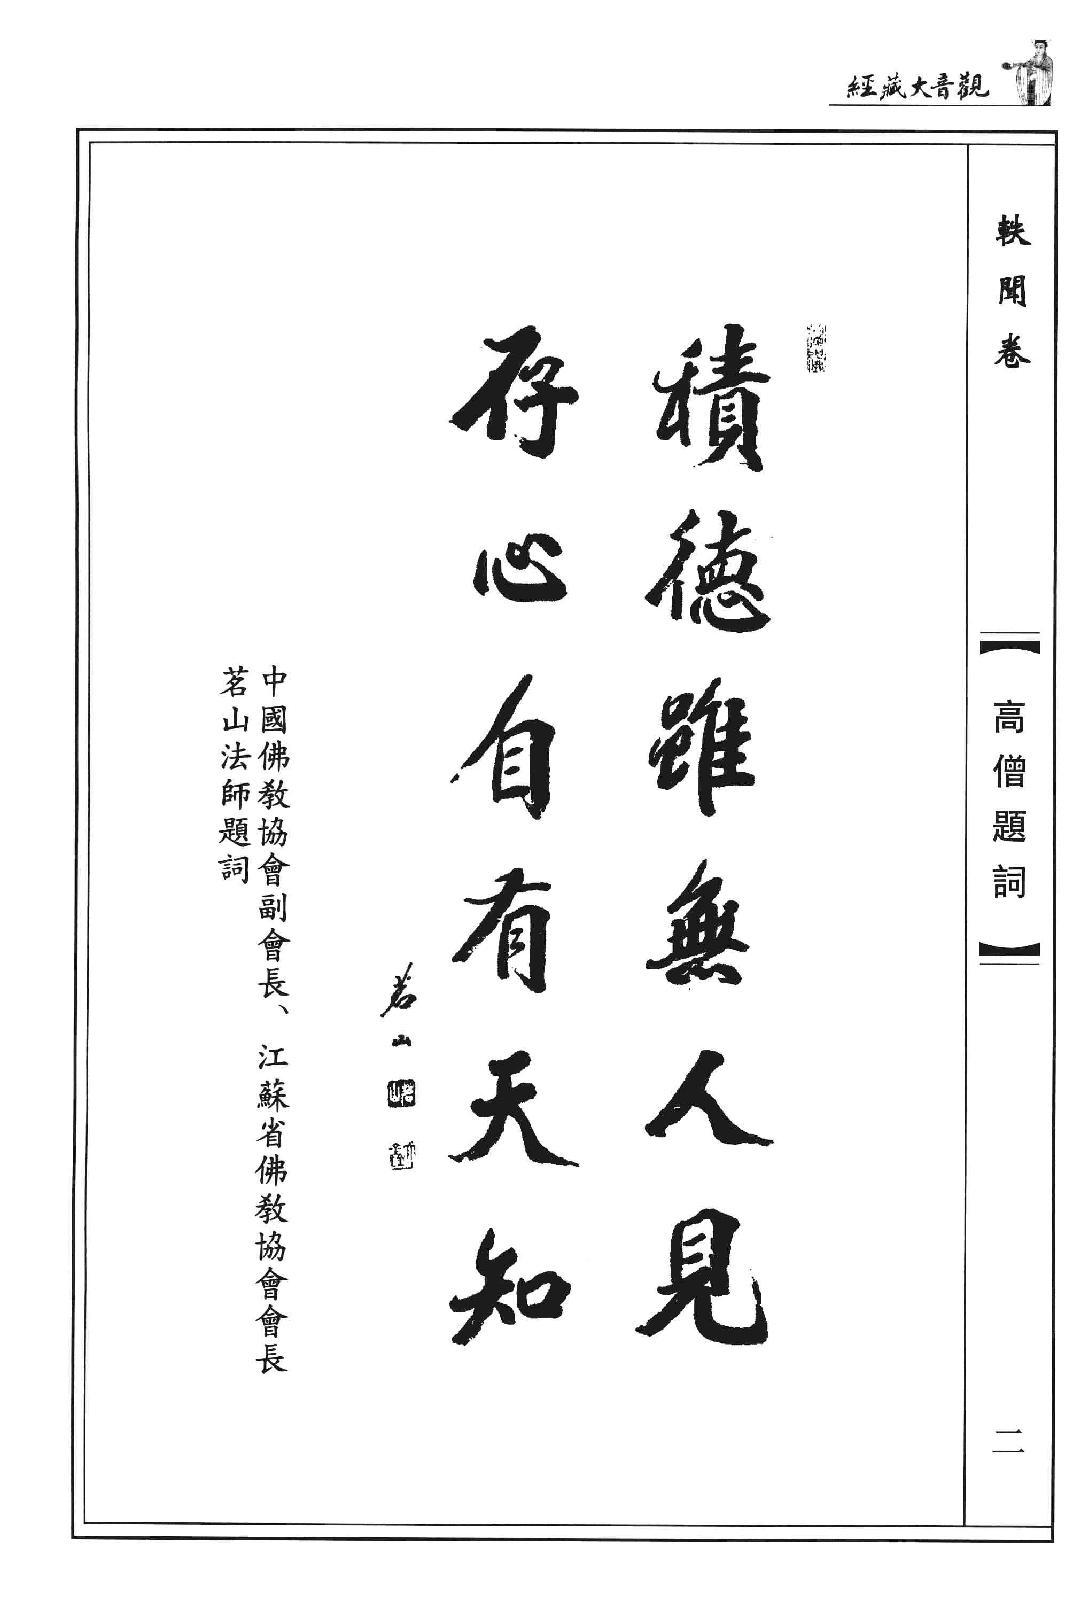 觀音大藏經
軼聞卷
【高僧題詞】
二
積德雖無人見
存心自有天知
茗山
中國佛教協會副會長、江蘇省佛教協會會長
茗山法師題詞